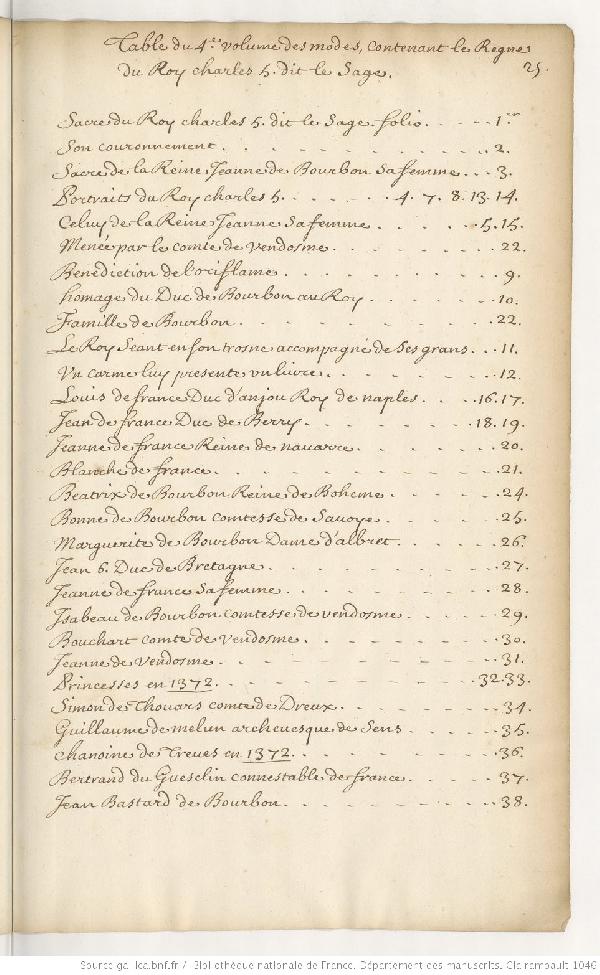 Table du 4.e volume des modes, contenant le Regne
du Roy charles 5. dit le Sage.
25.
Sacre du Roy charles 5. dit le Sage folio. . . . . 1.er
Son couronnement . . . . . . . . . . 2.
Sacre de la Reine Jeanne de Bourbon sa femme . . . 3.
Portraits du Roy charles 5. . . . . . . 4. 7. 8. 13. 14.
Celuy de la Reine Jeanne sa femme . . . . . . 5. 15.
Menée par le comte de Vendosme . . . . . . . 22.
Benediction de l'oriflame . . . . . . . . 9.
homage du Duc de Bourbon au Roy . . . . . . 10.
Famille de Bourbon . . . . . . . . . . 22.
Le Roy Seant en son trosne accompagné de ses grans . . . 11.
Un carme luy presente un livre . . . . . . . 12.
Louis de france Duc d'anjou Roy de naples . . . . 16. 17.
Jean de france Duc de Berry . . . . . . . 18. 19.
Jeanne de france Reine de navarre . . . . . . 20.
Blanche de france . . . . . . . . . . 21.
Beatrix de Bourbon Reine de Boheme . . . . . . 24.
Bonne de Bourbon comtesse de Savoye . . . . . . 25.
Marguerite de Bourbon Dame d'albret . . . . . . 26.
Jean 6. Duc de Bretagne . . . . . . . . 27.
Jeanne de france sa femme . . . . . . . . 28.
Isabeau de Bourbon comtesse de vendosme . . . . . 29.
Bouchart comte de Vendosme . . . . . . . . 30.
Jeanne de Vendosme . . . . . . . . . . 31.
Princesses en 1372 . . . . . . . . . 32. 33.
Simon de Thouars comte de Dreux . . . . . . . 34.
Guillaume de melun archevesque de Sens . . . . . 35.
chanoine de Treves en 1372 . . . . . . . . 36.
Bertrand du Guesclin connestable de france . . . . . 37.
Jean Bastard de Bourbon . . . . . . . . 38.
Source gallica.bnf.fr / Bibliothèque nationale de France. Département des manuscrits. Clairambault 1046